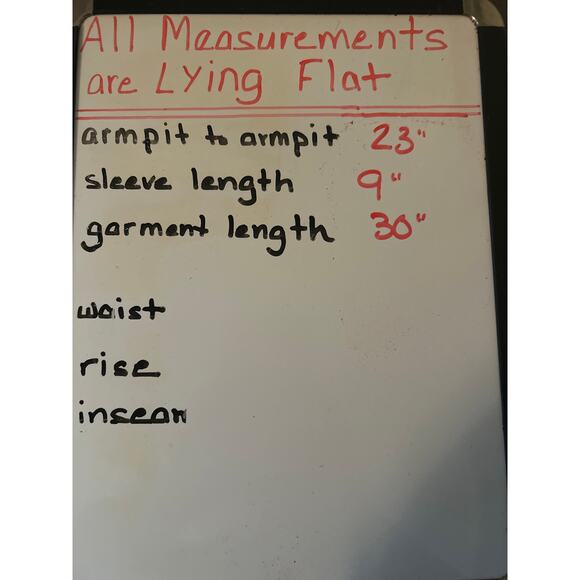 All Measurements
are Lying Flat
armpit to armpit 23"
sleeve length 9"
garment length 30"
waist
rise
inseam